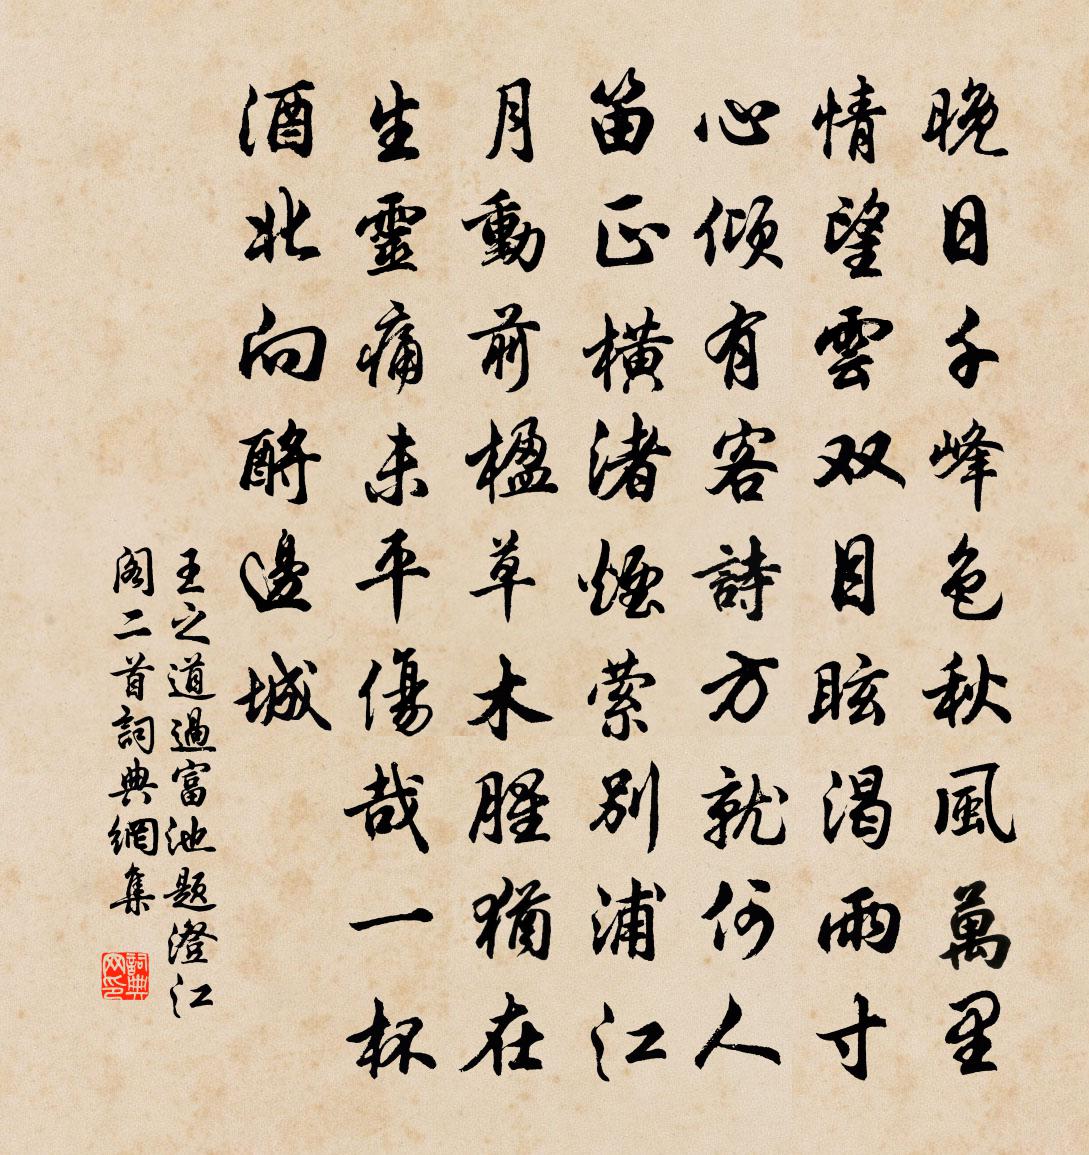 晚日千峰色秋風萬里
情望雲双目眩渴雨寸
心傾有客詩方就何人
笛正横渚煙縈別浦江
月動前楹草木腥猶在
生靈痛未平傷哉一杯
酒北向酹邊城
王之道過富池題澄江
阁二首詞典網集
詞典网印